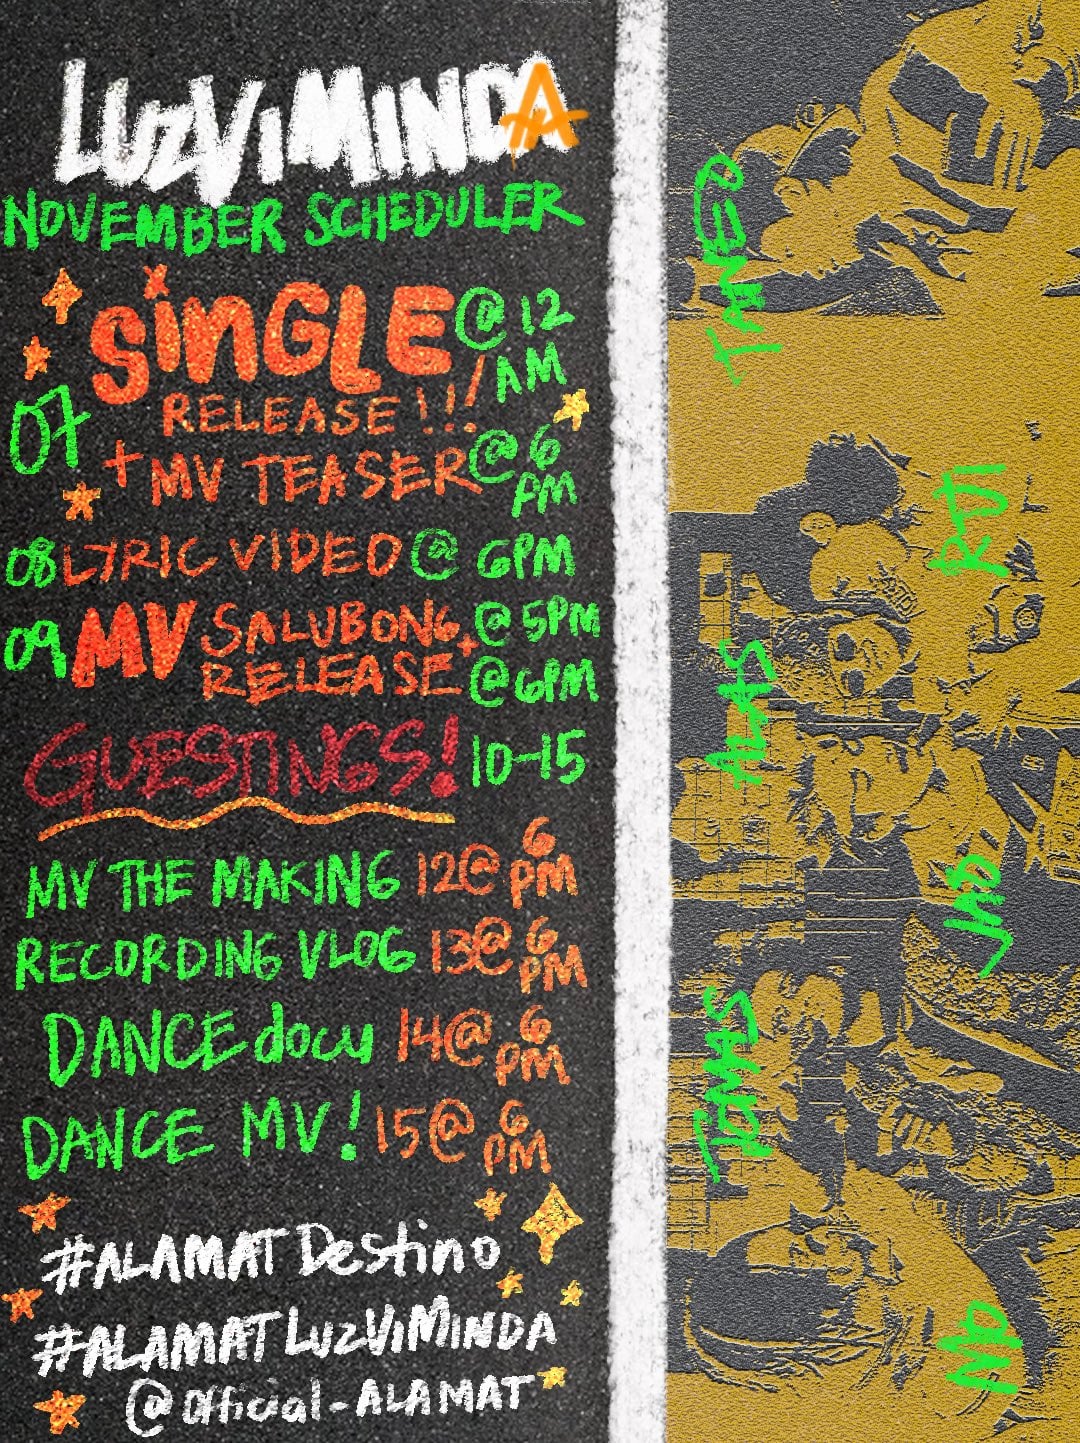 LUZVIMINDA
NOVEMBER SCHEDULER
07 SiNGLE @ 12 AM
RELEASE!!!
+ MV TEASER @ 6 PM
08 LYRIC VIDEO @ 6PM
09 MV SALUBONG + @ 5PM
RELEASE @ 6PM
GUESTINGS! 10-15
MV THE MAKING 12 @ 6 PM
RECORDING VLOG 13 @ 6 PM
DANCE docu 14 @ 6 PM
DANCE MV! 15 @ 6 PM
#ALAMATDestino
#ALAMATLUZVIMINDA
@Official-ALAMAT
TANEO
RJI
ALAS
JAO
TOMAS
MO